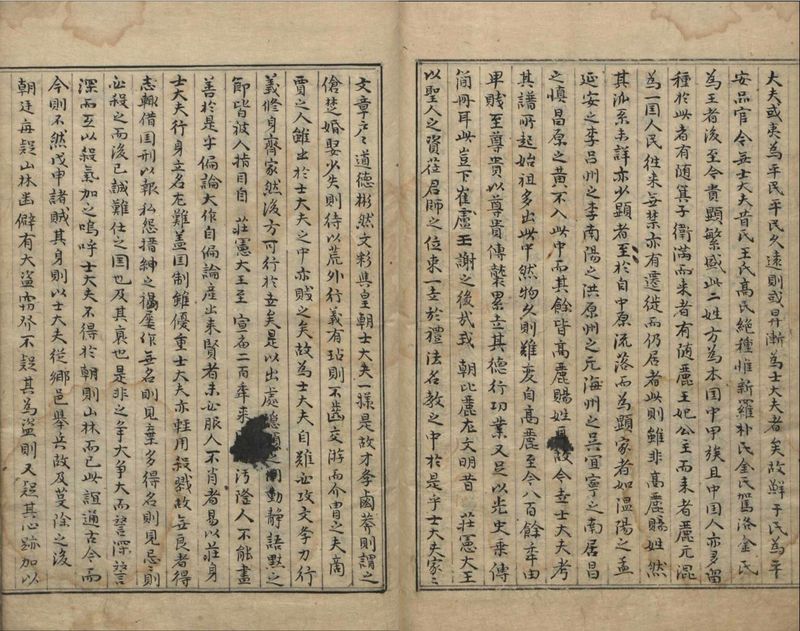 大夫或夷為平民平民久遠則或昇漸為士大夫者矣故鮮于氏為平
安品官今無士大夫昔氏王氏高氏絶種惟新羅朴氏金氏駕洛金氏
為王者後至今貴顯繁盛此二姓方為本国中甲族且中国人亦多留
種於此者有随箕子衛滿而来者有随麗王妃公主而来者麗元混
為一国人民徃来無禁亦有遷徙而仍居者此則雖非高麗賜姓然
其派系未詳亦少顯者至於自中原流落而為顯家者如溫陽之孟
延安之李呂州之李南陽之洪原州之元海州之吳宜寧之南居昌
之慎昌原之黄不入此中而其餘皆高麗賜姓故今無士大夫考
其譜所起始祖多出此中然物久則難変自高麗至今八百餘年由
卑賤至尊貴以尊貴傳襲累立其德行功業又足以光史乘傳
簡冊耳此豈下崔盧王謝之後哉我 朝比麗尤文明昔 莊憲大王
以聖人之資莅君師之位束一世於禮法名教之中於是乎士大夫家〻
文章戶〻道德彬然文彩與皇朝士大夫一様是故才学鹵莽則謂之
傖楚婚娶少失則待以荒外行義有玷則不齒交游而介冑之夫商
賈之人雖出於士大夫之中亦賤之矣故為士大夫自難必攻文学力行
義修身齊家然後方可行於世矣是以出處之間動静語默之
節皆被人指目自 莊憲大王至 宣庙二百年来汚隆人不能盡
善於是乎偏論大作自偏論産出来賢者未必服人不肖者易以荘身
士大夫行身立名尤難盖国制雖優重士大夫亦軽用殺戮故無良者得
志輒借国刑以報私怨搢紳之禍屢作無名則見棄多得名則見忌〻則
必殺之而後已誠難仕之国也及其衰也是非之争大争大而讐深讐
深而互以殺氣加之嗚呼士大夫不得於朝則山林而已此誼通古今而
今則不然戊申諸賊其身則以士大夫從郷邑舉兵故及蔓除之後
朝廷每疑山林幽僻有大盗窃発不疑其為盗則又疑其心跡加以